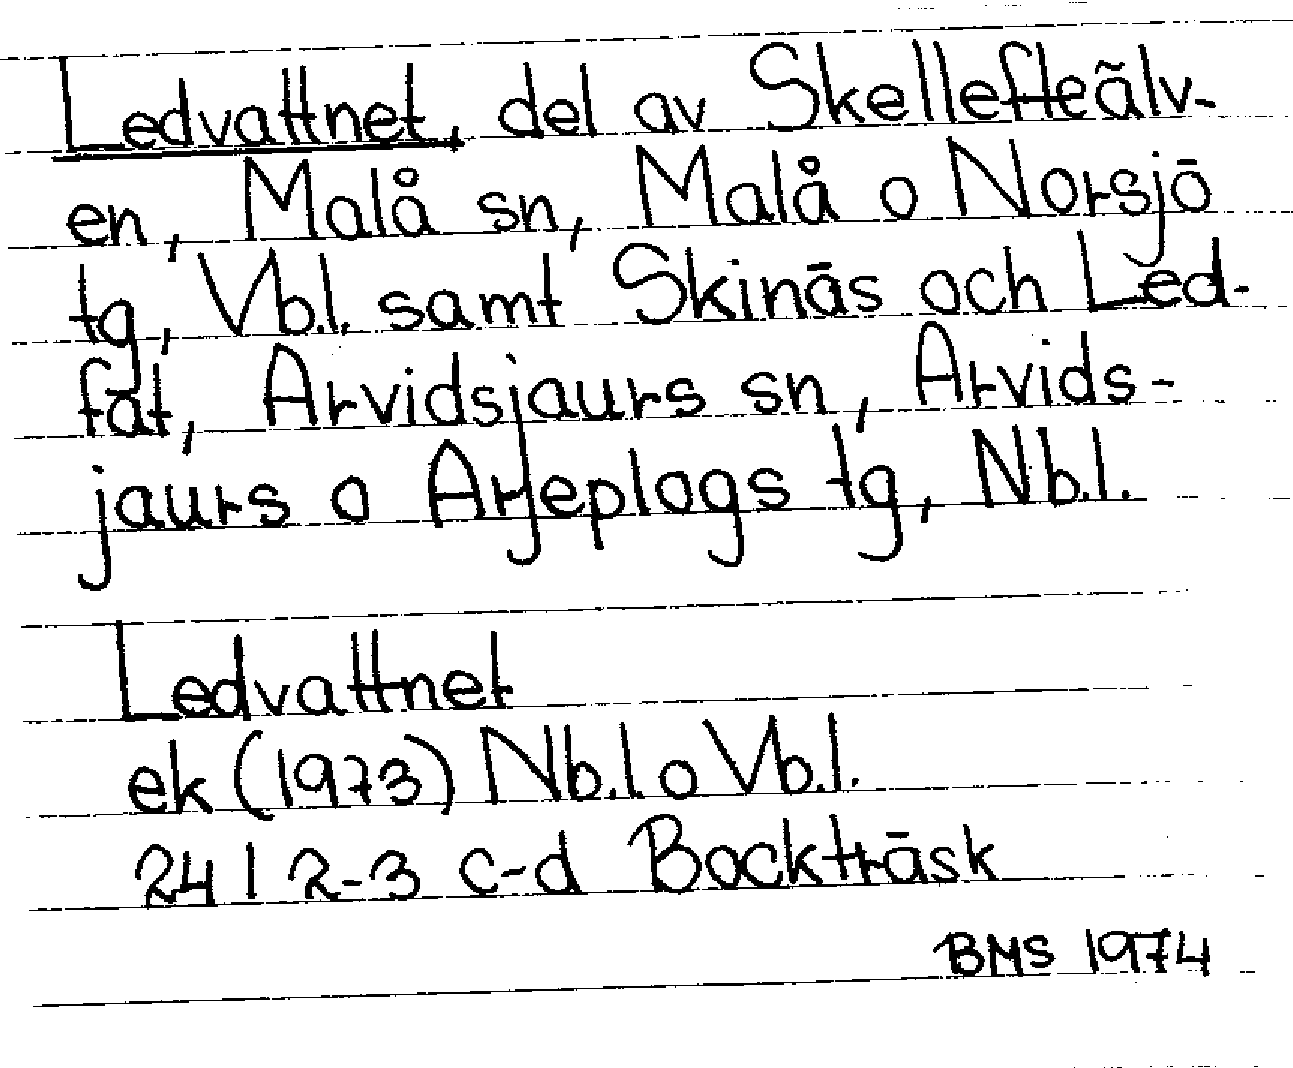 Ledvattnet, del av Skellefteälv-
en, Malå sn, Malå o Norsjö
tg, Vb.l. samt Skinäs och Led-
fat, Arvidsjaurs sn, Arvids-
jaurs o Arjeplogs tg, Nb.l.
Ledvattnet
ek (1973) Nb.l o Vb.l.
24 I 2-3 c-d Bockträsk
BMS 1974